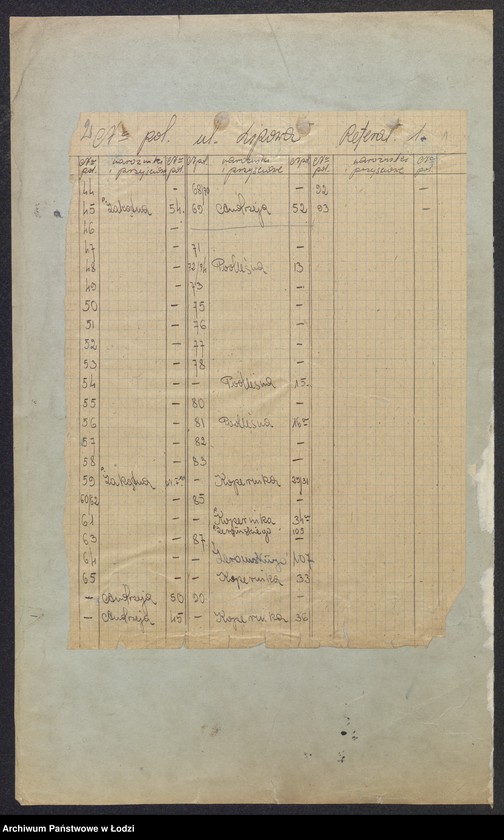 2 Nr pol. ul. Lipowa Referat. 1.
Nr pol. narożniki i przyjezdne Nr pol. Nr pol. narożniki i Nr pol. Nr pol. narożniki i Nr pol.
44 – 68/70 – 92 –
45 Zakątna 54. 69 Andrzeja 52 93 –
46 –
47 – 71 –
48 – Podleśna 13
49 – 73 –
50 – 75 –
51 – 76 –
52 – 77 –
53 – 78 –
54 – – Podleśna 15.
55 – 80 –
56 – 81 Podleśna 16
57 – 82 –
58 – 83 –
59 Zakątna – Kopernika 29/31
60/62 – 85 –
61 – – Kopernika 34
Żeromskiego 105
63 – 87 –
64 – – 107
65 – – Kopernika 33
– Andrzeja 50 90. –
– Andrzeja 45 – Kopernika 36
Archiwum Państwowe w Łodzi